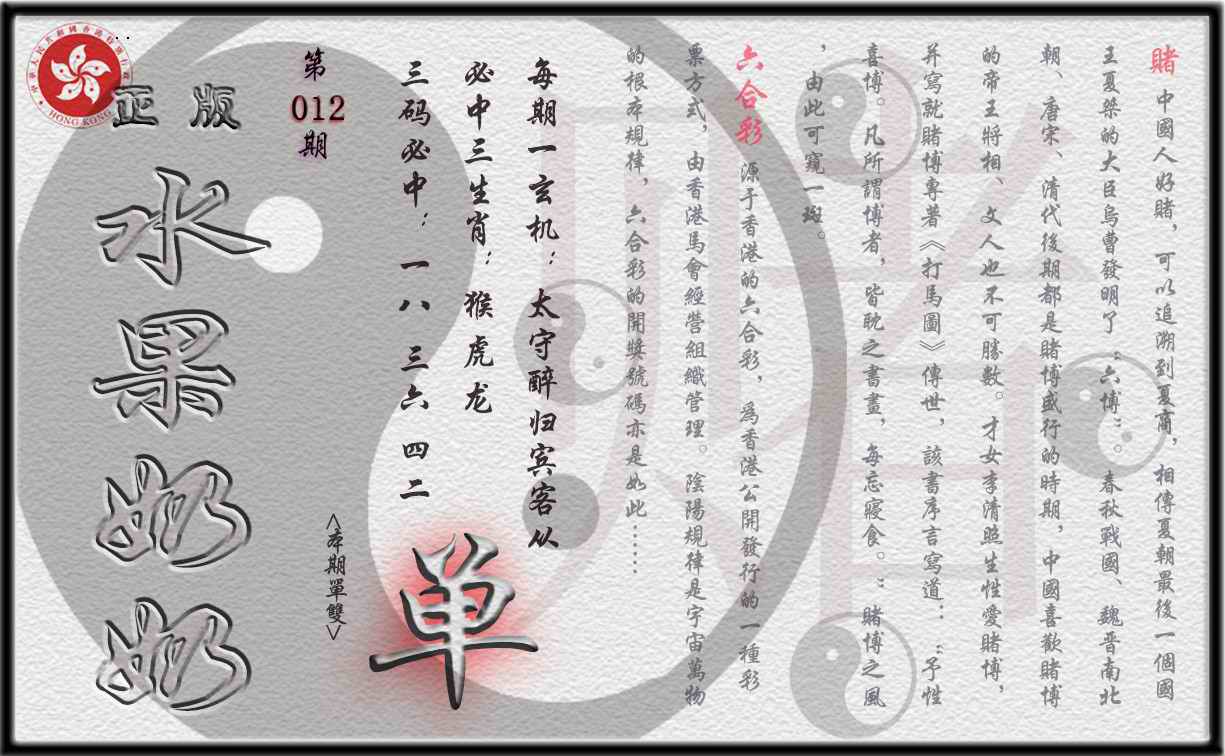 賭 中國人好賭，可以追溯到夏商，相傳夏朝最後一個國
王夏桀的大臣烏曹發明了“六博”。春秋戰國、魏晋南北
朝、唐宋、清代後期都是賭博盛行的時期，中國喜歡賭博
的帝王將相、文人也不可勝數。才女李清照生性愛賭博，
并寫就賭博專著《打馬圖》傳世，該書序言寫道：“予性
喜博。凡所謂博者，皆耽之書畫，每忘寢食。”賭博之風
，由此可窺一斑。
六合彩 源于香港的六合彩，爲香港公開發行的一種彩
票方式，由香港馬會經營組織管理。陰陽規律是宇宙萬物
的根本規律，六合彩的開獎號碼亦是如此……
每期一玄机：太守醉归宾客从
必中三生肖：猴虎龙
三码必中：一八 三六 四二
单
<本期單雙>
第
012
期
正版
水果奶奶
中華人民共和國香港特別行政區
HONG KONG